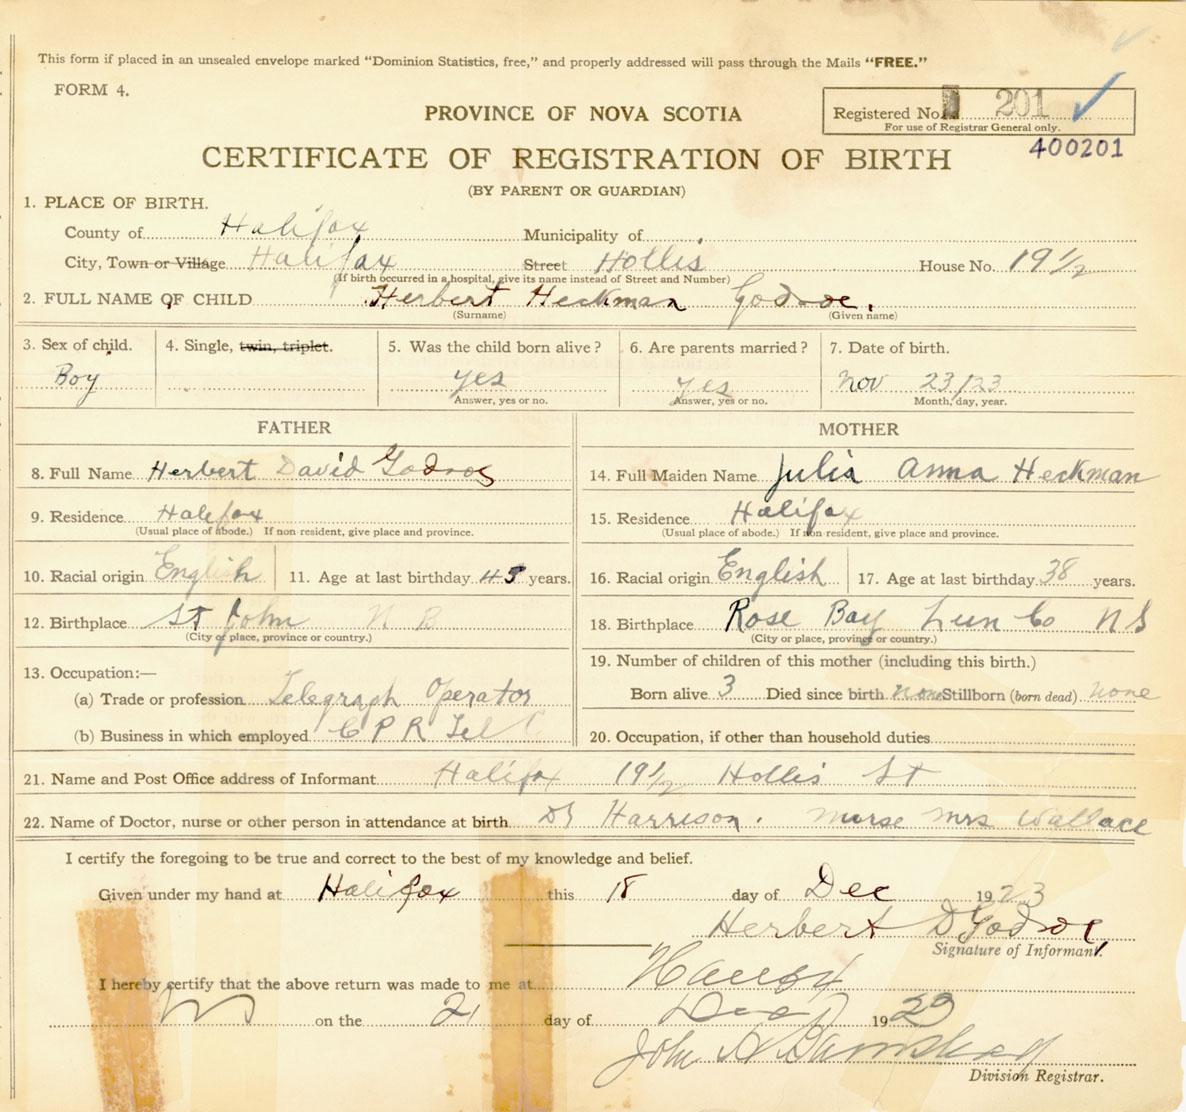 This form if placed in an unsealed envelope marked "Dominion Statistics, free," and properly addressed will pass through the Mails "FREE."
FORM 4.
PROVINCE OF NOVA SCOTIA
Registered No. 201
For use of Registrar General only.
400201
CERTIFICATE OF REGISTRATION OF BIRTH
(BY PARENT OR GUARDIAN)
1. PLACE OF BIRTH.
County of Halifax Municipality of
City, Town or Village Halifax Street Hollis House No. 19 1/2
(If birth occurred in a hospital, give its name instead of Street and Number)
2. FULL NAME OF CHILD Herbert Heckman Godsoe.
(Surname) (Given name)
3. Sex of child. 4. Single, twin, triplet. 5. Was the child born alive? 6. Are parents married? 7. Date of birth.
Boy yes yes Nov 23/23
Answer, yes or no. Answer, yes or no. Month, day, year.
FATHER MOTHER
8. Full Name Herbert David Godsoe 14. Full Maiden Name Julia Anna Heckman
9. Residence Halifax 15. Residence Halifax
(Usual place of abode.) If non-resident, give place and province. (Usual place of abode.) If non-resident, give place and province.
10. Racial origin English 11. Age at last birthday 45 years. 16. Racial origin English 17. Age at last birthday 38 years.
12. Birthplace St John N B 18. Birthplace Rose Bay Lun Co N S
(City or place, province or country.) (City or place, province or country.)
13. Occupation:— 19. Number of children of this mother (including this birth.)
(a) Trade or profession Telegraph Operator Born alive 3 Died since birth none Stillborn (born dead) none
(b) Business in which employed C P R Tel C 20. Occupation, if other than household duties
21. Name and Post Office address of Informant Halifax 19 1/2 Hollis St
22. Name of Doctor, nurse or other person in attendance at birth Dr Harrison. nurse Mrs Wallace
I certify the foregoing to be true and correct to the best of my knowledge and belief.
Given under my hand at Halifax this 18 day of Dec 1923
Herbert D Godsoe
Signature of Informant.
I hereby certify that the above return was made to me at Halifax
NS on the 21 day of Dec 1923
John A
Division Registrar.